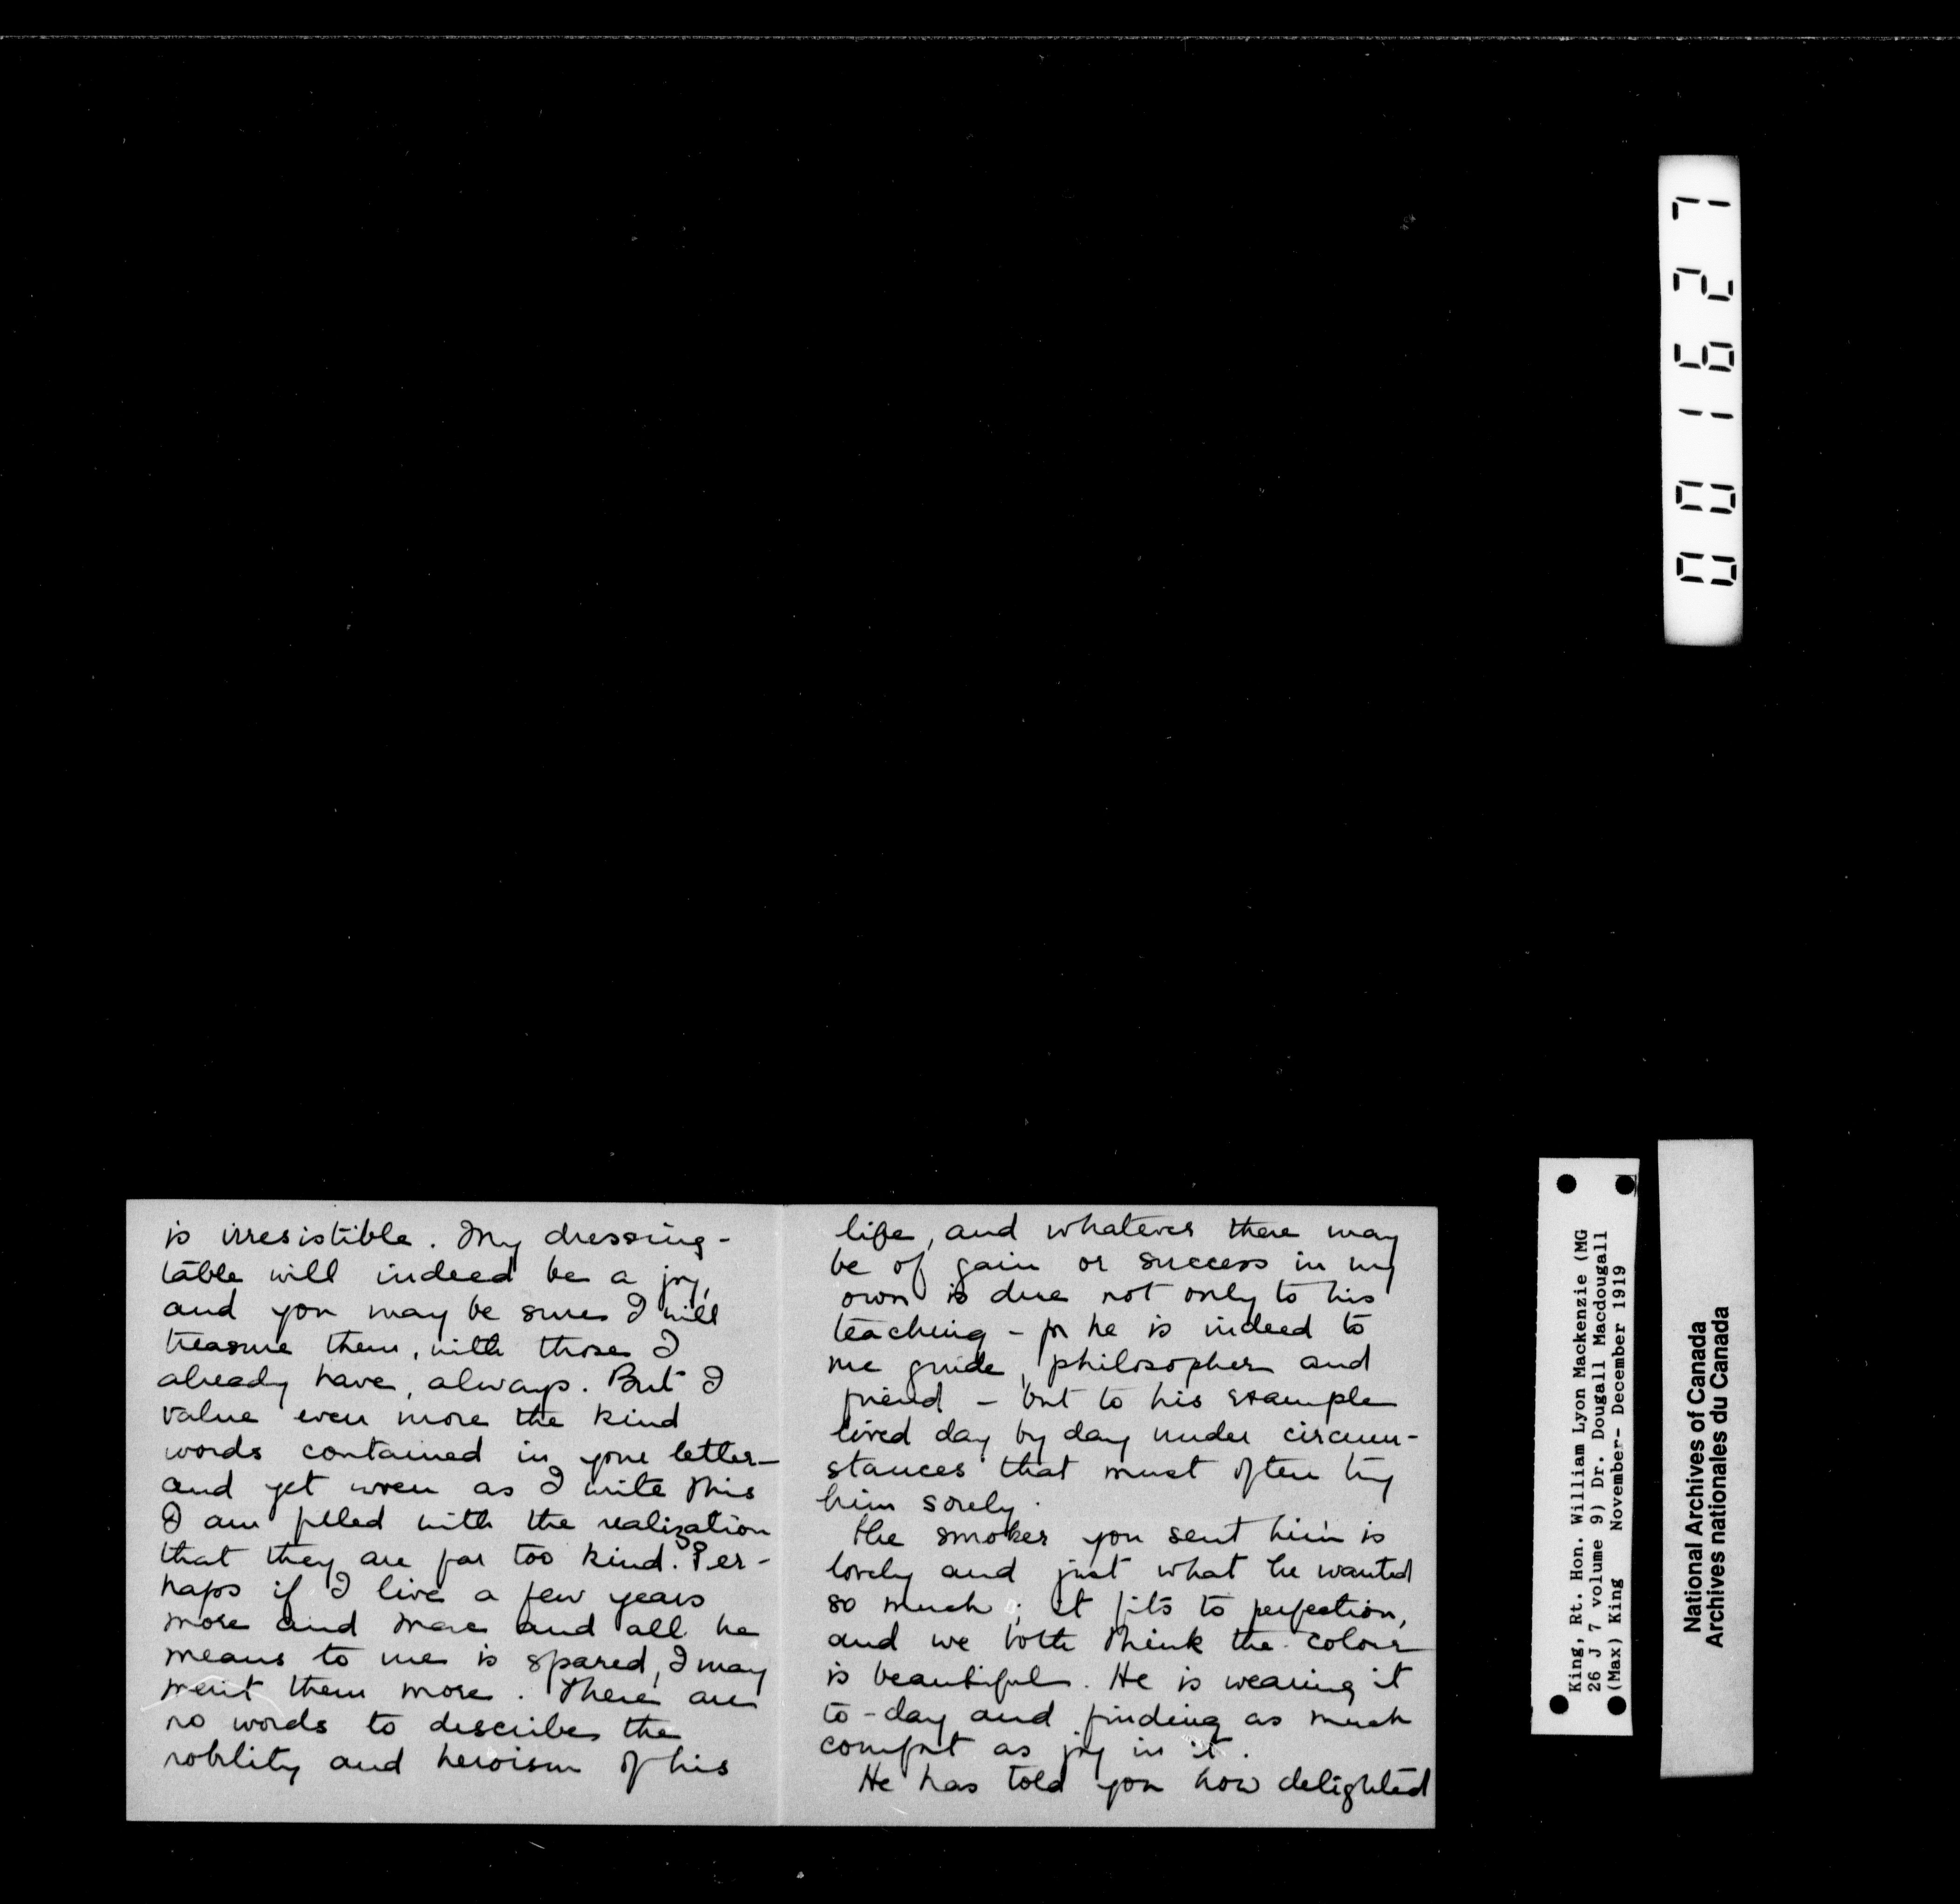 is irresistible. My dressing-
table will indeed be a joy,
and you may be sure I will
treasure them, with those I
already have, always. But I
value even more the kind
words contained in your letter—
and yet even as I write this
I am filled with the realization
that they are far too kind. Per-
haps if I live a few years
more and and all he
means to me is spared, I may
merit them more. There are
no words to describe the
nobility and heroism of his
life, and whatever there may
be of gain or success in my
own is due not only to his
teaching – for he is indeed to
me guide, philosopher and
friend – but to his example
lived day by day under circum-
stances that must often try
him sorely.
The smoker you sent him is
lovely and just what he wanted
so much; it fits to perfection,
and we both think the colour
is beautiful. He is wearing it
to-day and finding as much
comfort as joy in it.
He has told you how delighted
King, Rt. Hon. William Lyon Mackenzie (MG
26 J 7 volume 9) Dr. Dougall Macdougall
(Max) King November- December 1919
National Archives of Canada
Archives nationales du Canada
001627